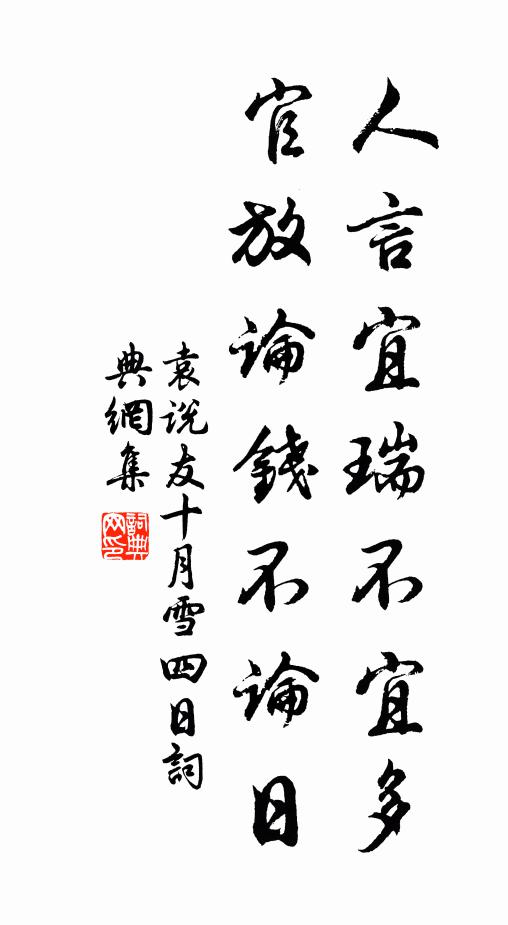 人言宜瑞不宜多
官放論錢不論日
袁說友十月雪四日詞
典網集
詞典
網印